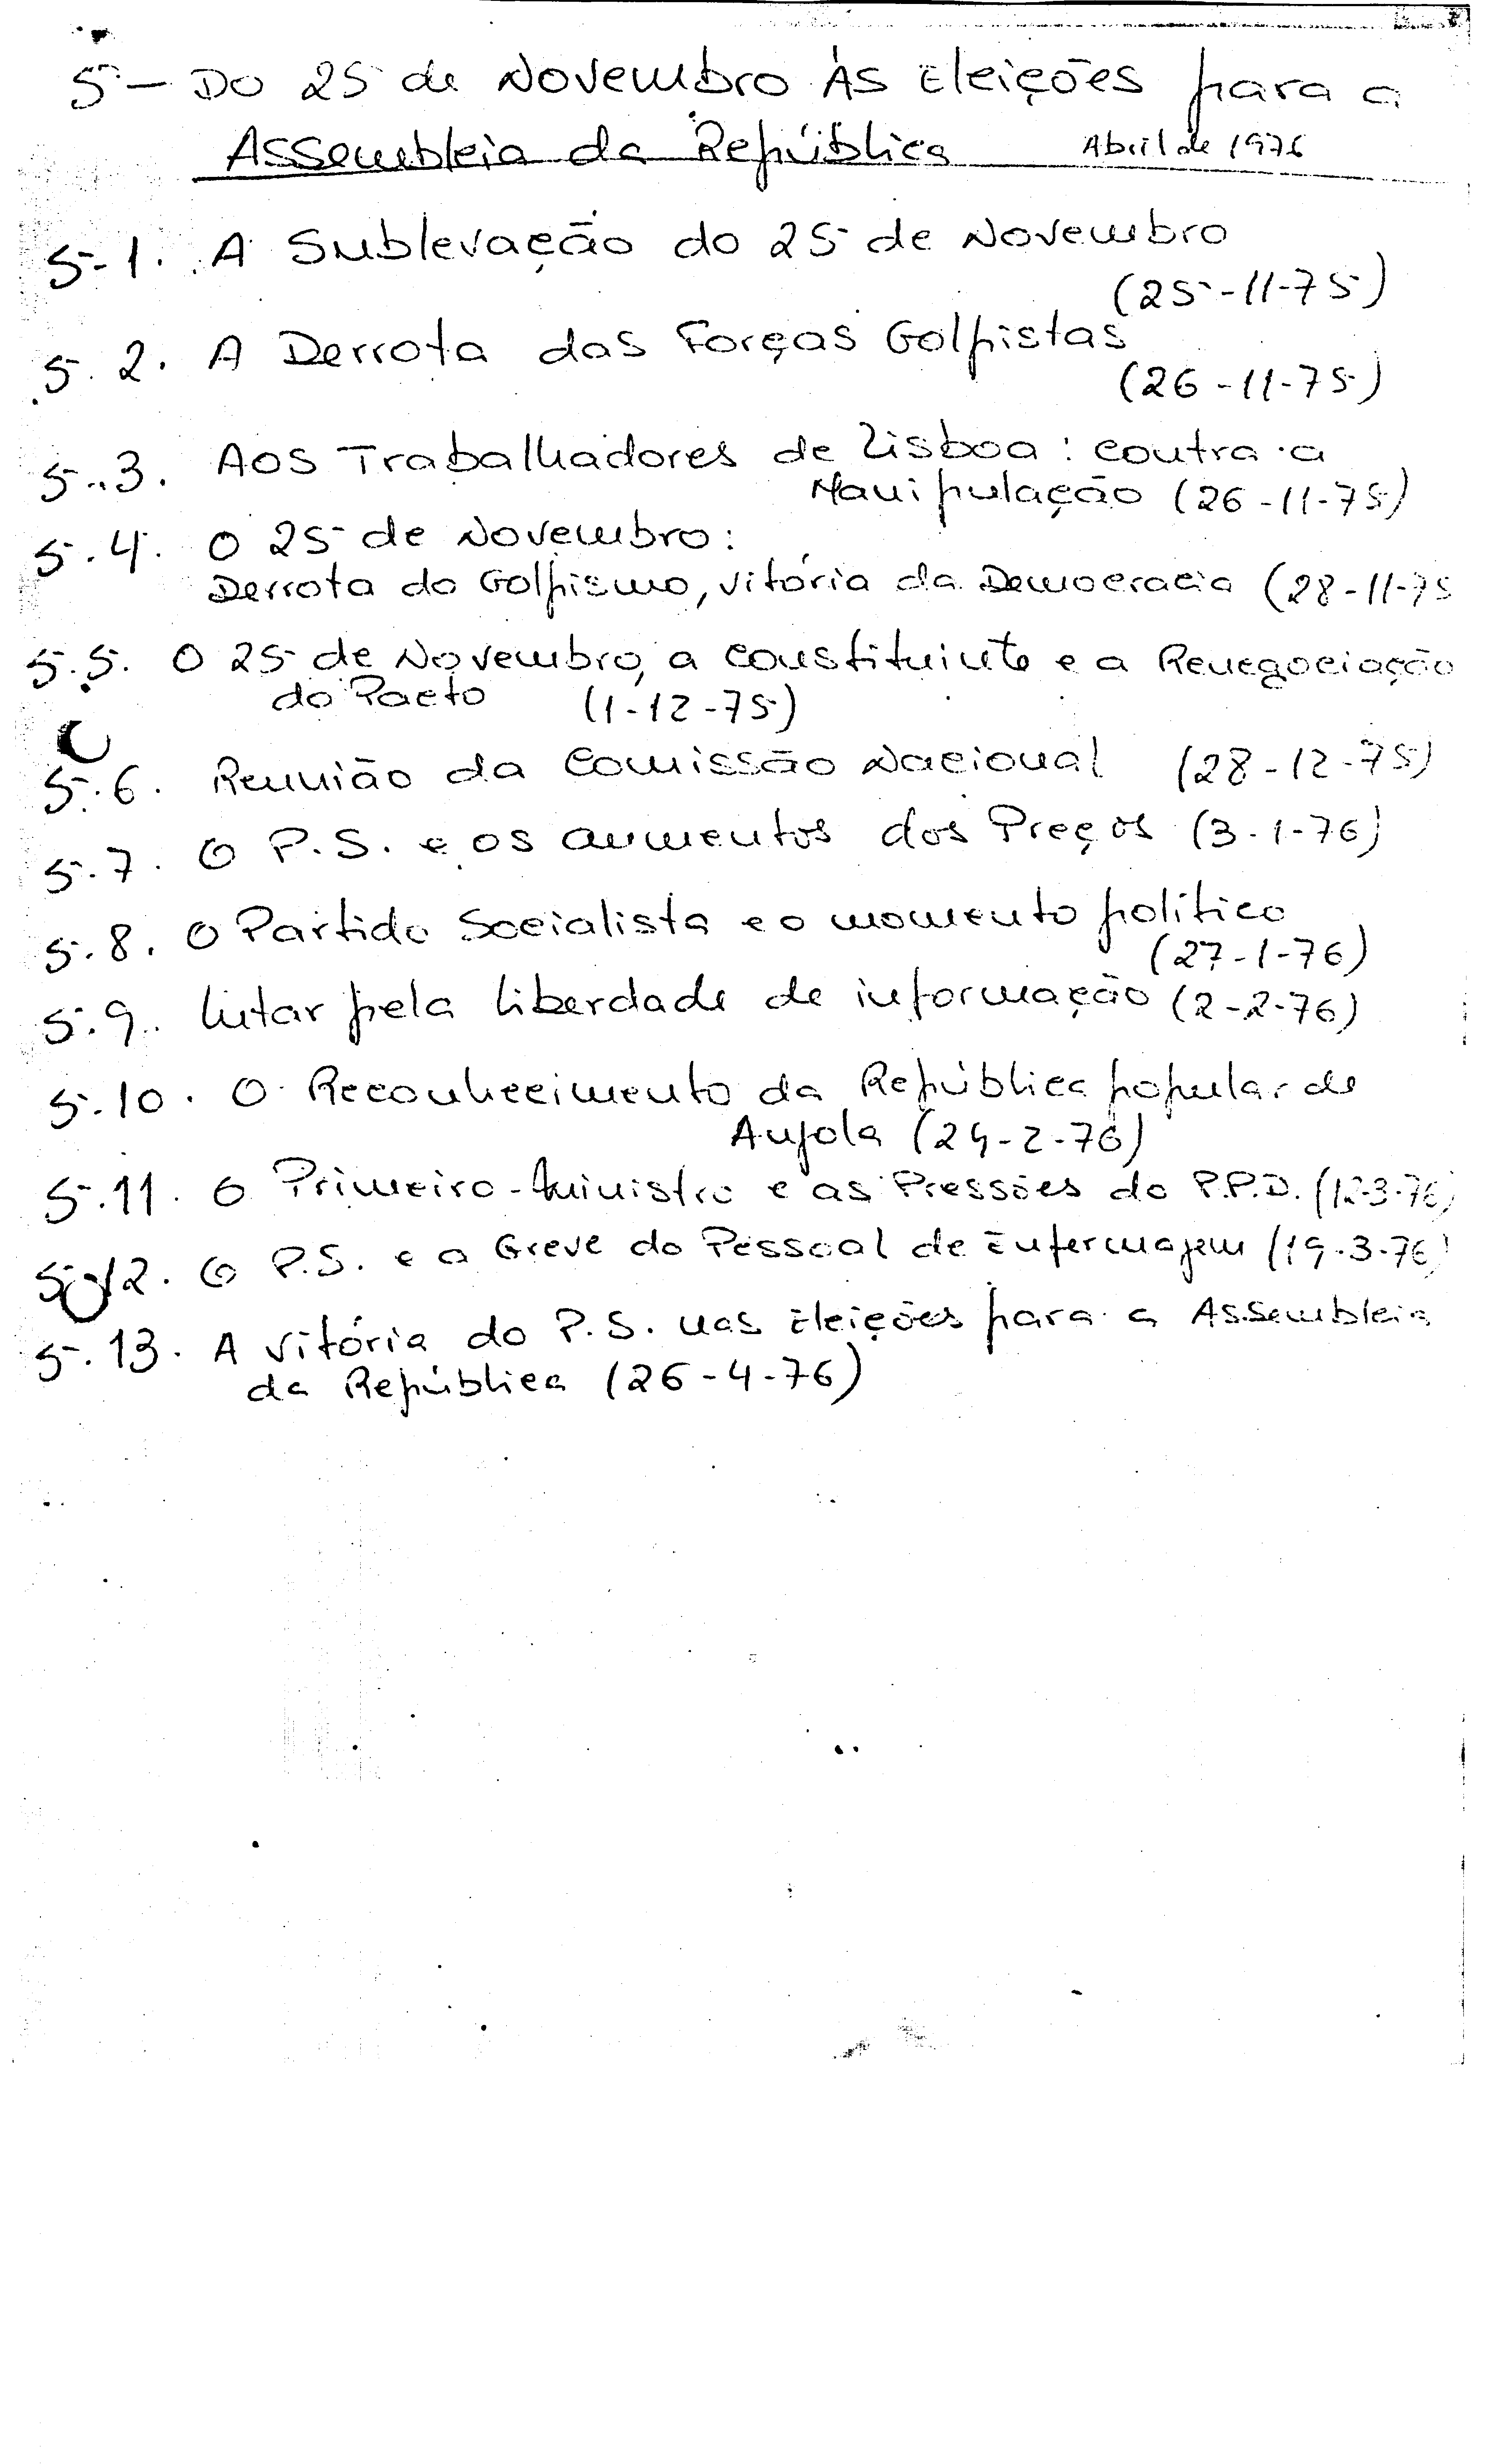 5 - Do 25 de Novembro Às Eleições para a
Assembleia da República Abril de 1976
5-1. A Sublevação do 25 de Novembro
(25-11-75)
5.2. A Derrota das Forças Golpistas
(26-11-75)
5.3. Aos Trabalhadores de Lisboa: contra a
Manipulação (26-11-75)
5.4. O 25 de Novembro:
Derrota do Golpismo, vitória da Democracia (28-11-75
5.5. O 25 de Novembro, a Constituinte e a Renegociação
do Pacto (1-12-75)
5.6. Reunião da Comissão Nacional (28-12-75)
5.7. O P.S. e os aumentos dos Preços (3-1-76)
5.8. O Partido Socialista e o momento político
(27-1-76)
5.9. Lutar pela liberdade de informação (2-2-76)
5.10. O Reconhecimento da República popular de
Angola (24-2-76)
5.11. O Primeiro-Ministro e as Pressões do P.P.D. (12-3-76)
5.12. O P.S. e a Greve do Pessoal de Enfermagem (19-3-76)
5.13. A vitória do P.S. nas Eleições para a Assembleia
da República (26-4-76)